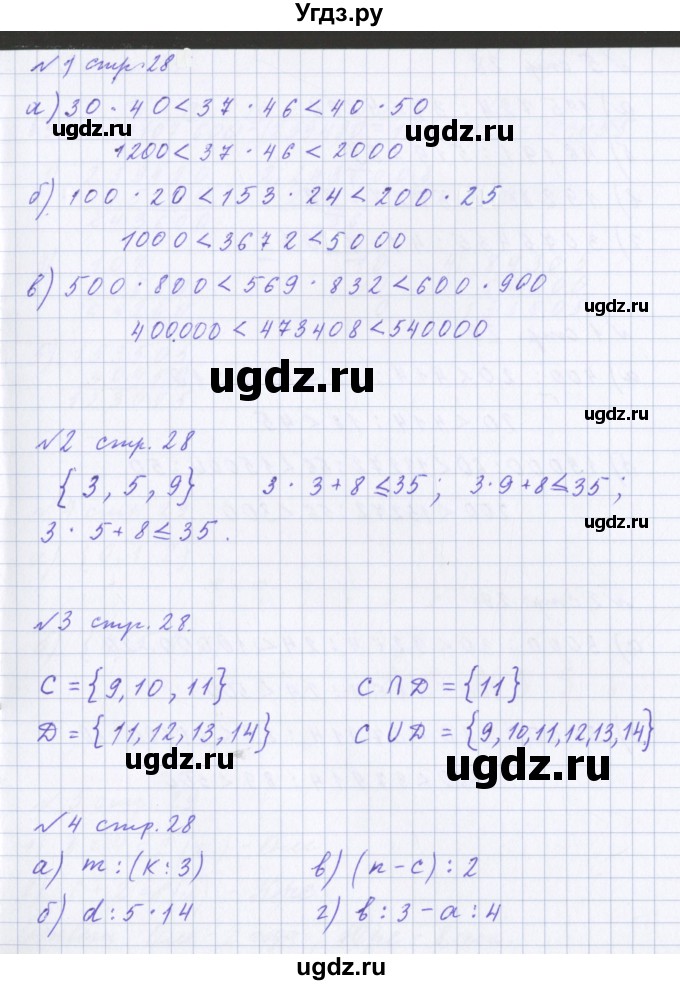 Угдз.ру
№1 стр. 28
а) 30 · 40 < 37 · 46 < 40 · 50
ugdz.ru
ugdz.ru
1200 < 37 · 46 < 2000
б) 100 · 20 < 153 · 24 < 200 · 25
1000 < 3672 < 5000
в) 500 · 800 < 569 · 832 < 600 · 900
ugdz.ru
400.000 < 473408 < 540000
ugdz.ru
ugdz.ru
№2 стр. 28
{3, 5, 9} 3 · 3 + 8 ≤ 35 ; 3 · 9 + 8 ≤ 35 ;
ugdz.ru
3 · 5 + 8 ≤ 35 .
№3 стр. 28.
C = {9, 10, 11} C ∩ D = {11}
D = {11, 12, 13, 14} C ∪ D = {9, 10, 11, 12, 13, 14}
ugdz.ru
ugdz.ru
№4 стр. 28
а) m : (k : 3) в) (n - c) : 2
б) d : 5 · 14 г) b : 3 - a : 4
ugdz.ru